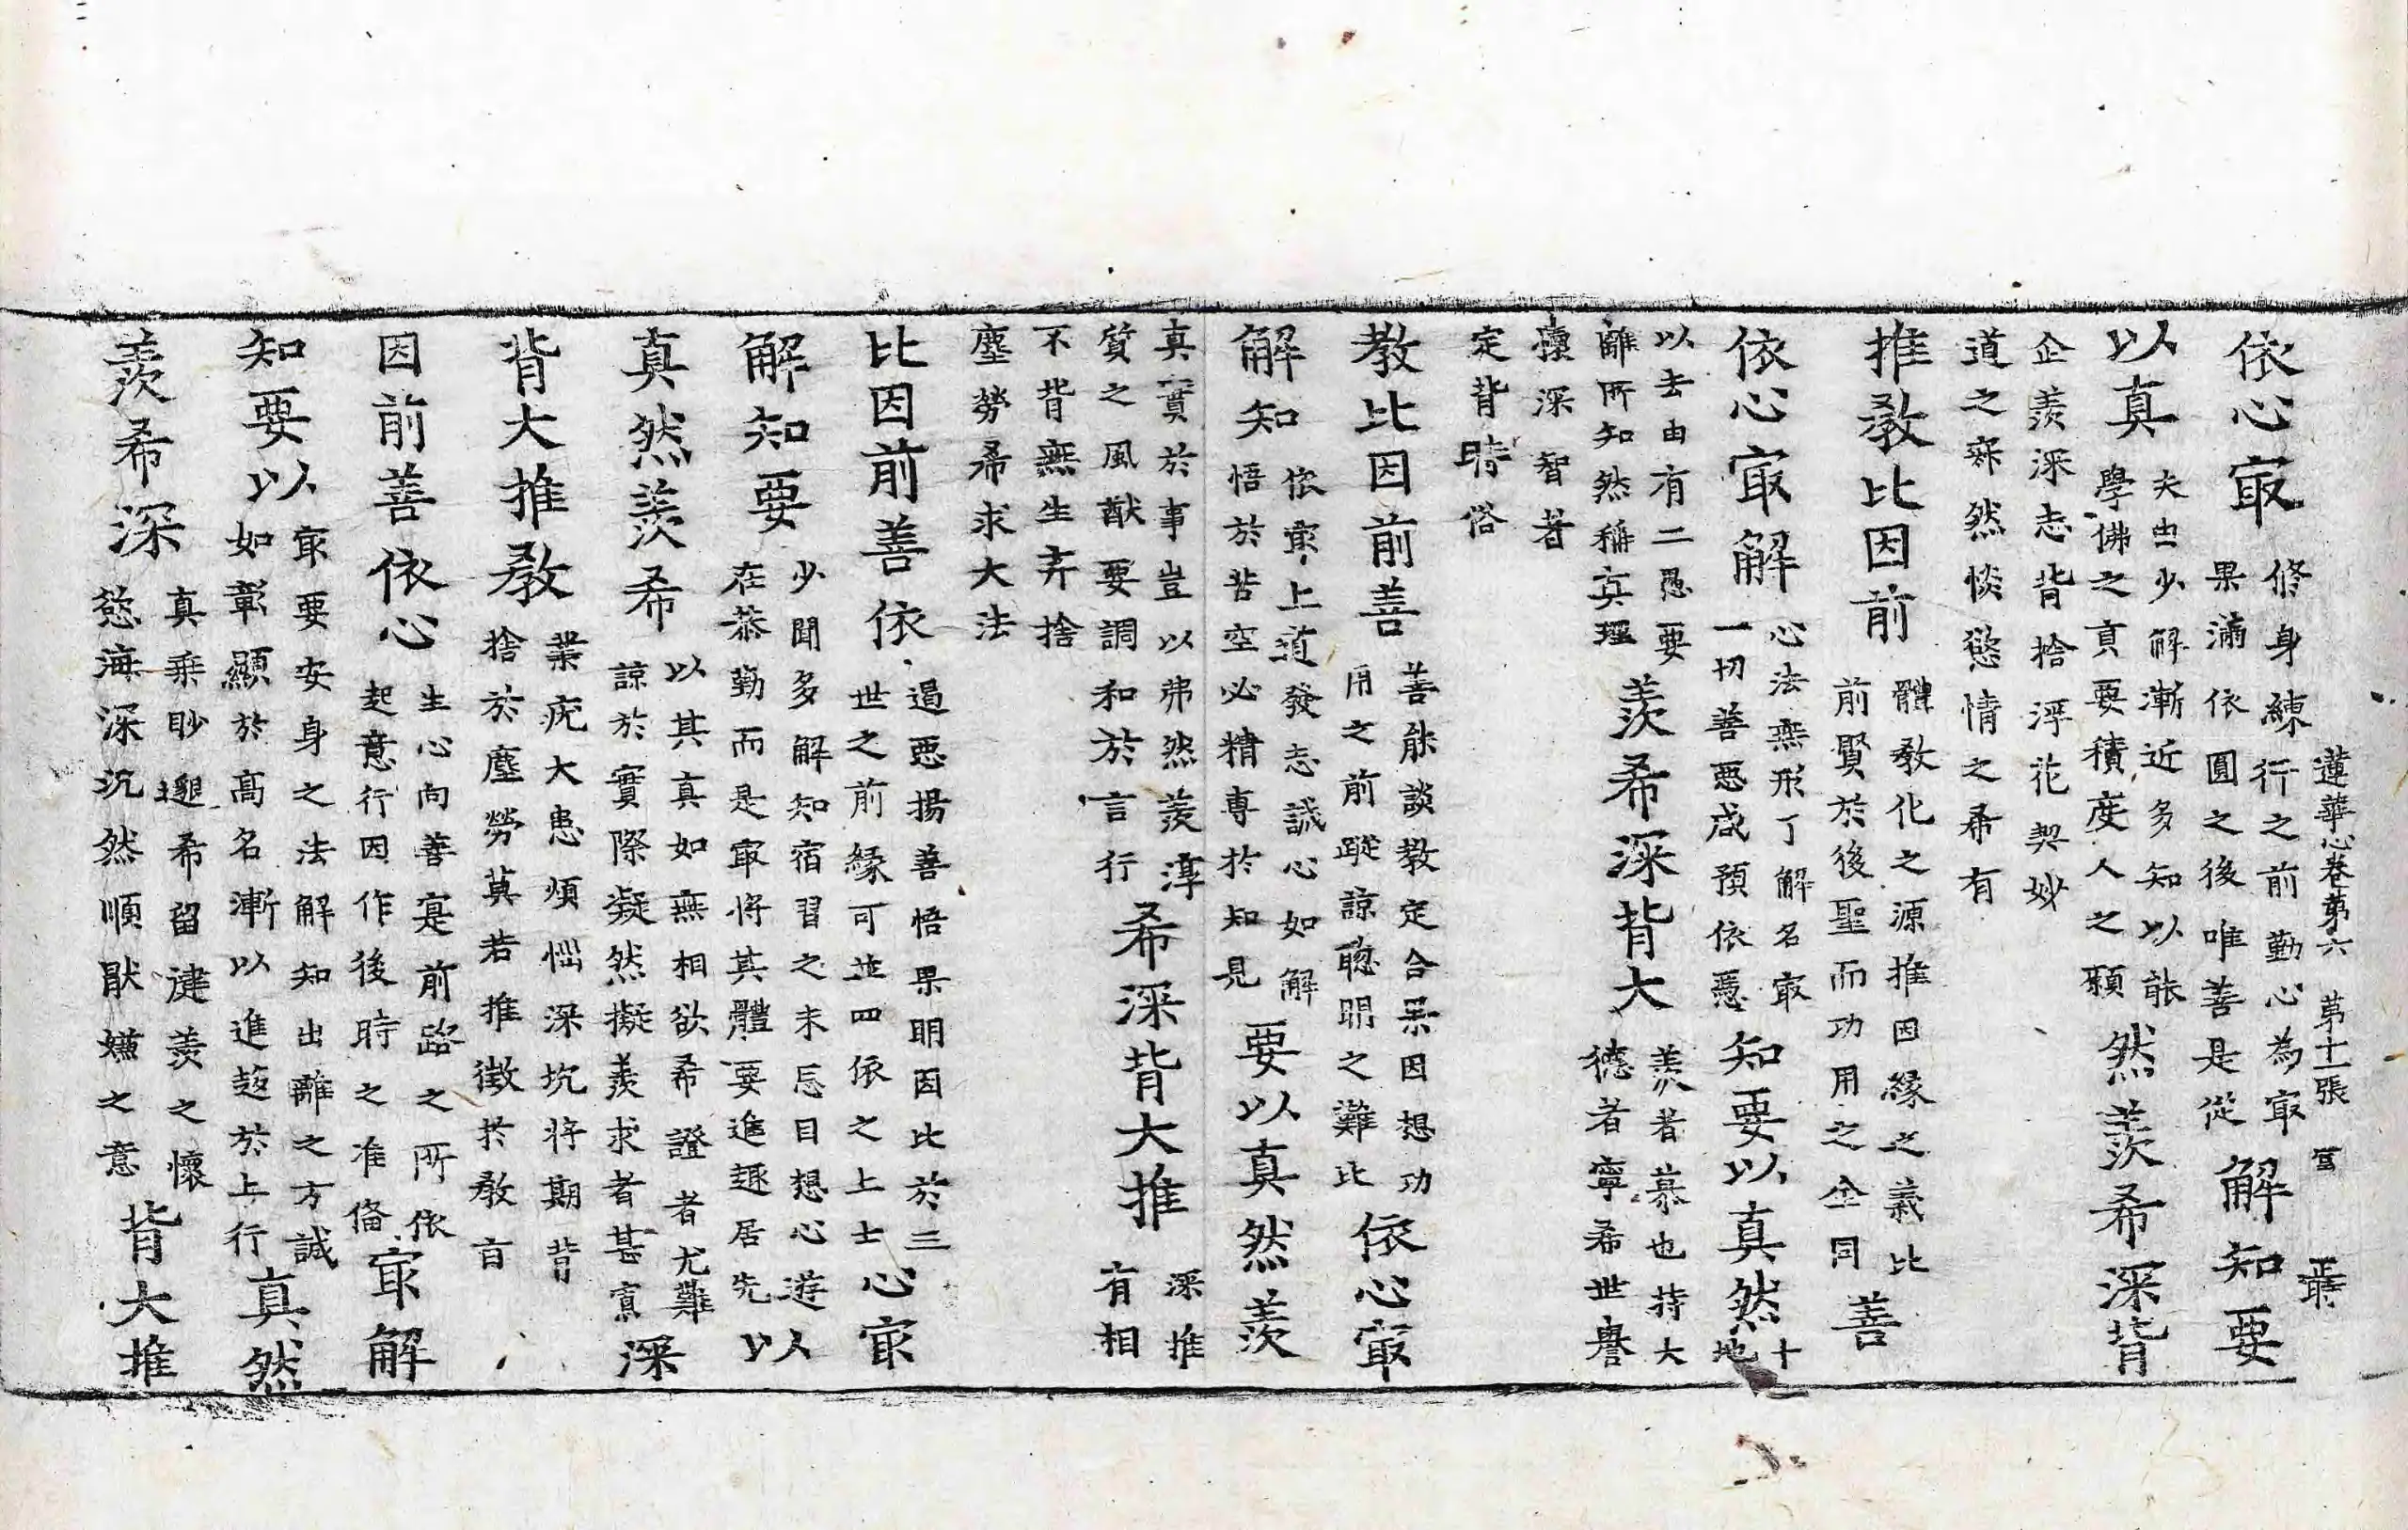 蓮華心卷第六 第十一張 宮 叢
依心㝡 修身練行之前勤心為㝡 果滿依圓之後唯善是從 解知要
以真 夫由少解漸近多知以能 學佛之貢要積度人之願 然羨希深背
企羨深志背捨浮花契妙
道之寂然惔慾情之希有
推教比因前 體教化之源推因緣之義比 前賢於後聖而功用之全同 善
依心㝡解 心法無形了解名㝡 一切善惡咸預依憑 知要以真然 十 地
以去由有二愚要 離所知然稱真理 羨希深背大 羨者慕也持大 德者寧希世譽
懷深智者
定背時俗
教比因前善 善能談教定合果因想功 用之前蹤諒聰明之難比 依心㝡
解知 依㝡上道發志誠心如解 悟於苦空必精專於知見 要以真然羨
真實於事豈以弗然羨淳 質之風猷要調和於言行 希深背大推 深推 有相
不背無生弃捨
塵勞希求大法
比因前善依 遏惡揚善悟果明因比於三 世之前緣可並四依之上士 心㝡
解知要 少聞多解知宿習之未忘目想心遊 在恭勤而是㝡將其體要進趣居先 以
真然羨希 以其真如無相欲希證者尤難 諒於實際凝然擬羨求者甚寡 深
背大推教 業疣大患煩惱深坑將期背 捨於塵勞莫若推徵於教旨
因前善依心 生心向善寔前路之所依 起意行因作後時之准俻 㝡解
知要以 㝡要安身之法解知出離之方誠 如彰顯於高名漸以進趍於上行 真然
羨希深 真乗眇邈希留謇羨之懷 慾海深沉然順猒嫌之意 背大推